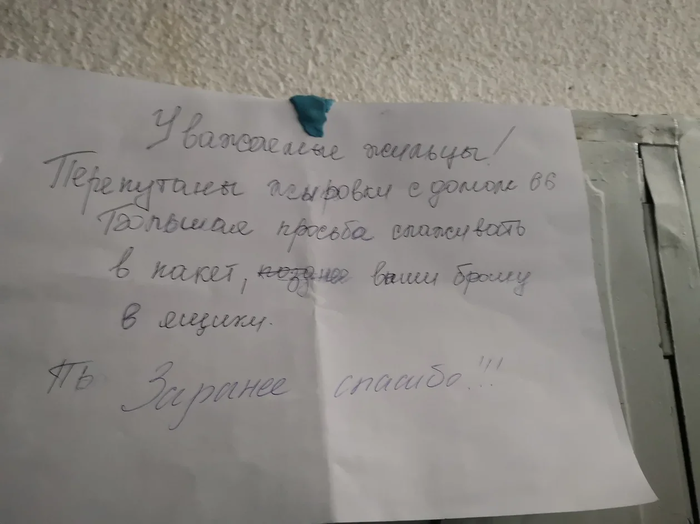 Уважаемые жильцы!
Перепутаны жыровки с домом 66
Большая просьба слаживать
в пакет, позднее ваши брошу
в ящики.
Заранее спасибо!!!